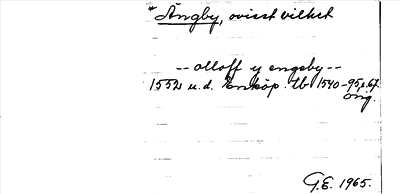 * Ängby, ovisst vilket
-- olloff y engeby --
1552 u.d. Enköp. Tb 1540-95, s. 67.
orig.
G.E. 1965.